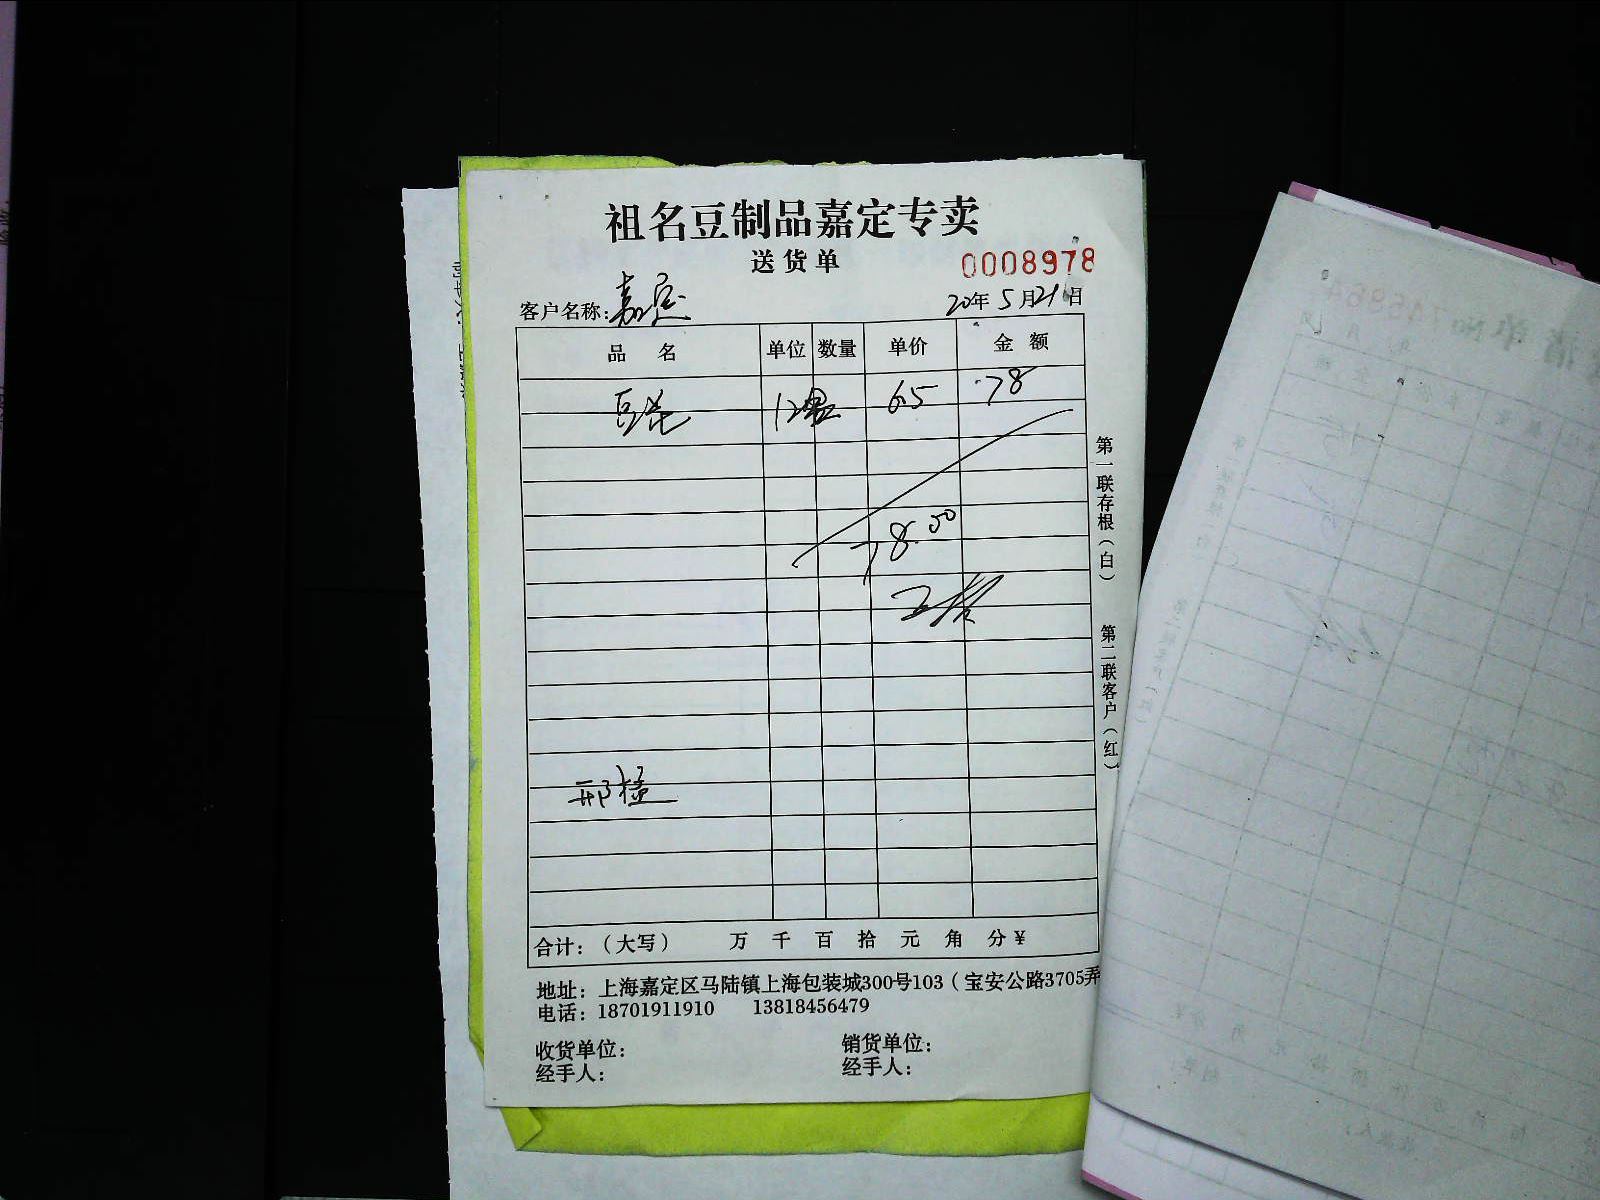 祖名豆制品嘉定专卖
送货单
0008978
客户名称：嘉定
20年5月21日
品 名 单位 数量 单价 金额
12 6.5 78
78.00
邢
第一联存根（白） 第二联客户（红）
合计：（大写） 万 千 百 拾 元 角 分￥
地址：上海嘉定区马陆镇上海包装城300号103（宝安公路3705弄
电话：18701911910 13818456479
收货单位： 销货单位：
经手人： 经手人：